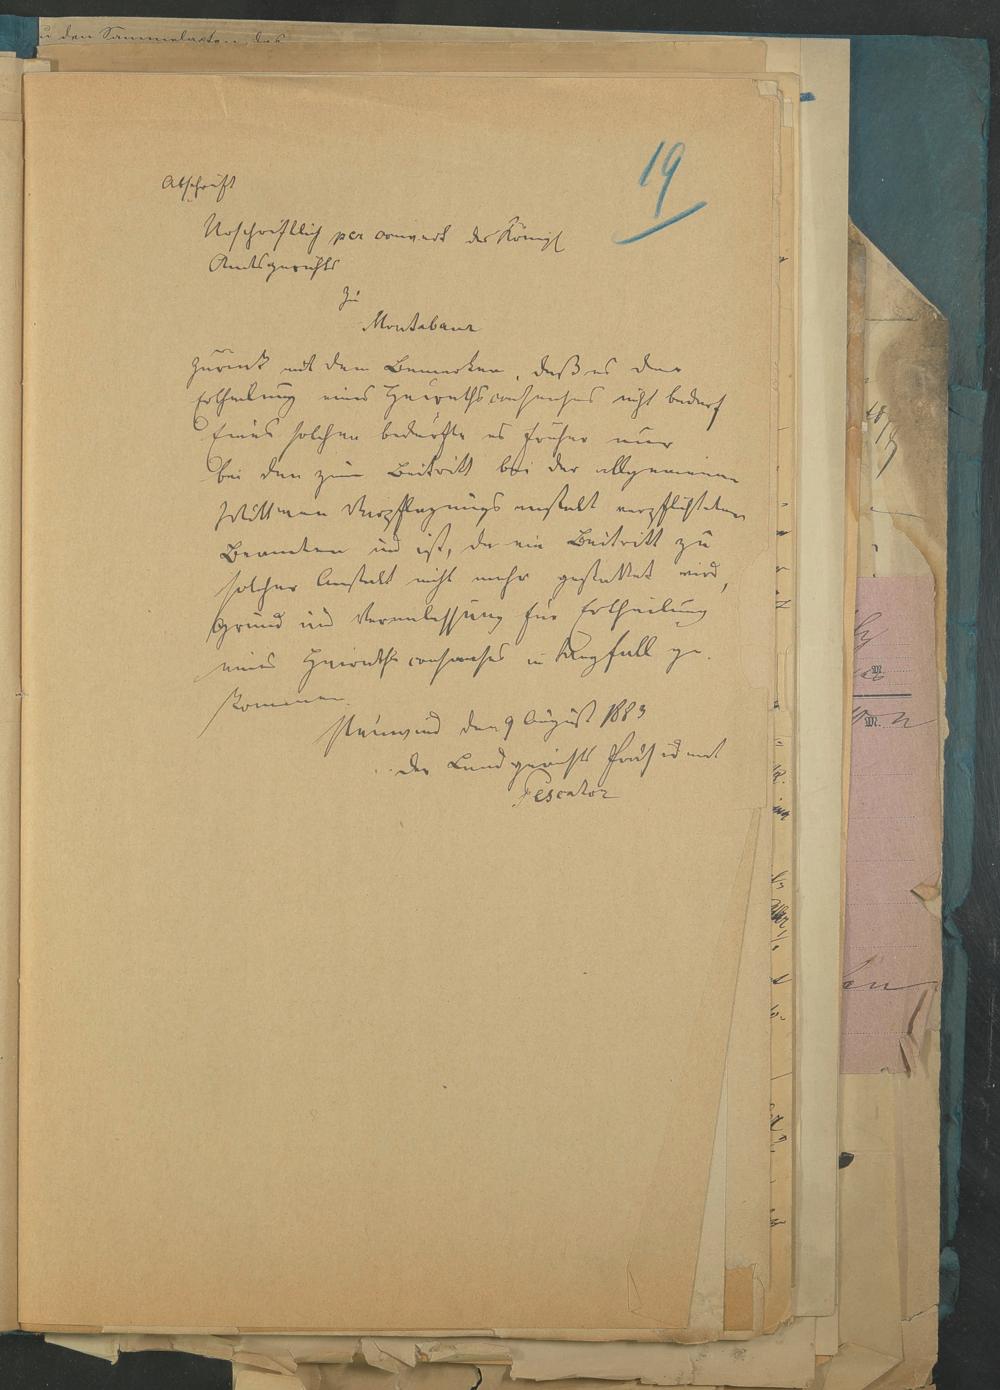 u den Sammelakten des
19
Abschrift
Urschriftlich per couvert des Königl
Amtsgerichts
zu
Montabaur
zurück mit dem Bemerken, daß es der
Ertheilung eines Heirathsconsenses nicht bedarf
Eines solchen bedurfte es früher nur
bei den zum Beitritt bei der allgemeinen
Wittwen Verpflegungs anstalt verpflichteten
Beamten und ist, da ein Beitritt zu
solcher Anstalt nicht mehr gestattet wird,
Grund und Veranlassung für Ertheilung
eines Heirathsconsenses in Wegfall ge-
kommen.
Neuwied den 9 August 1883
der Landgerichts Präsident
Pescator